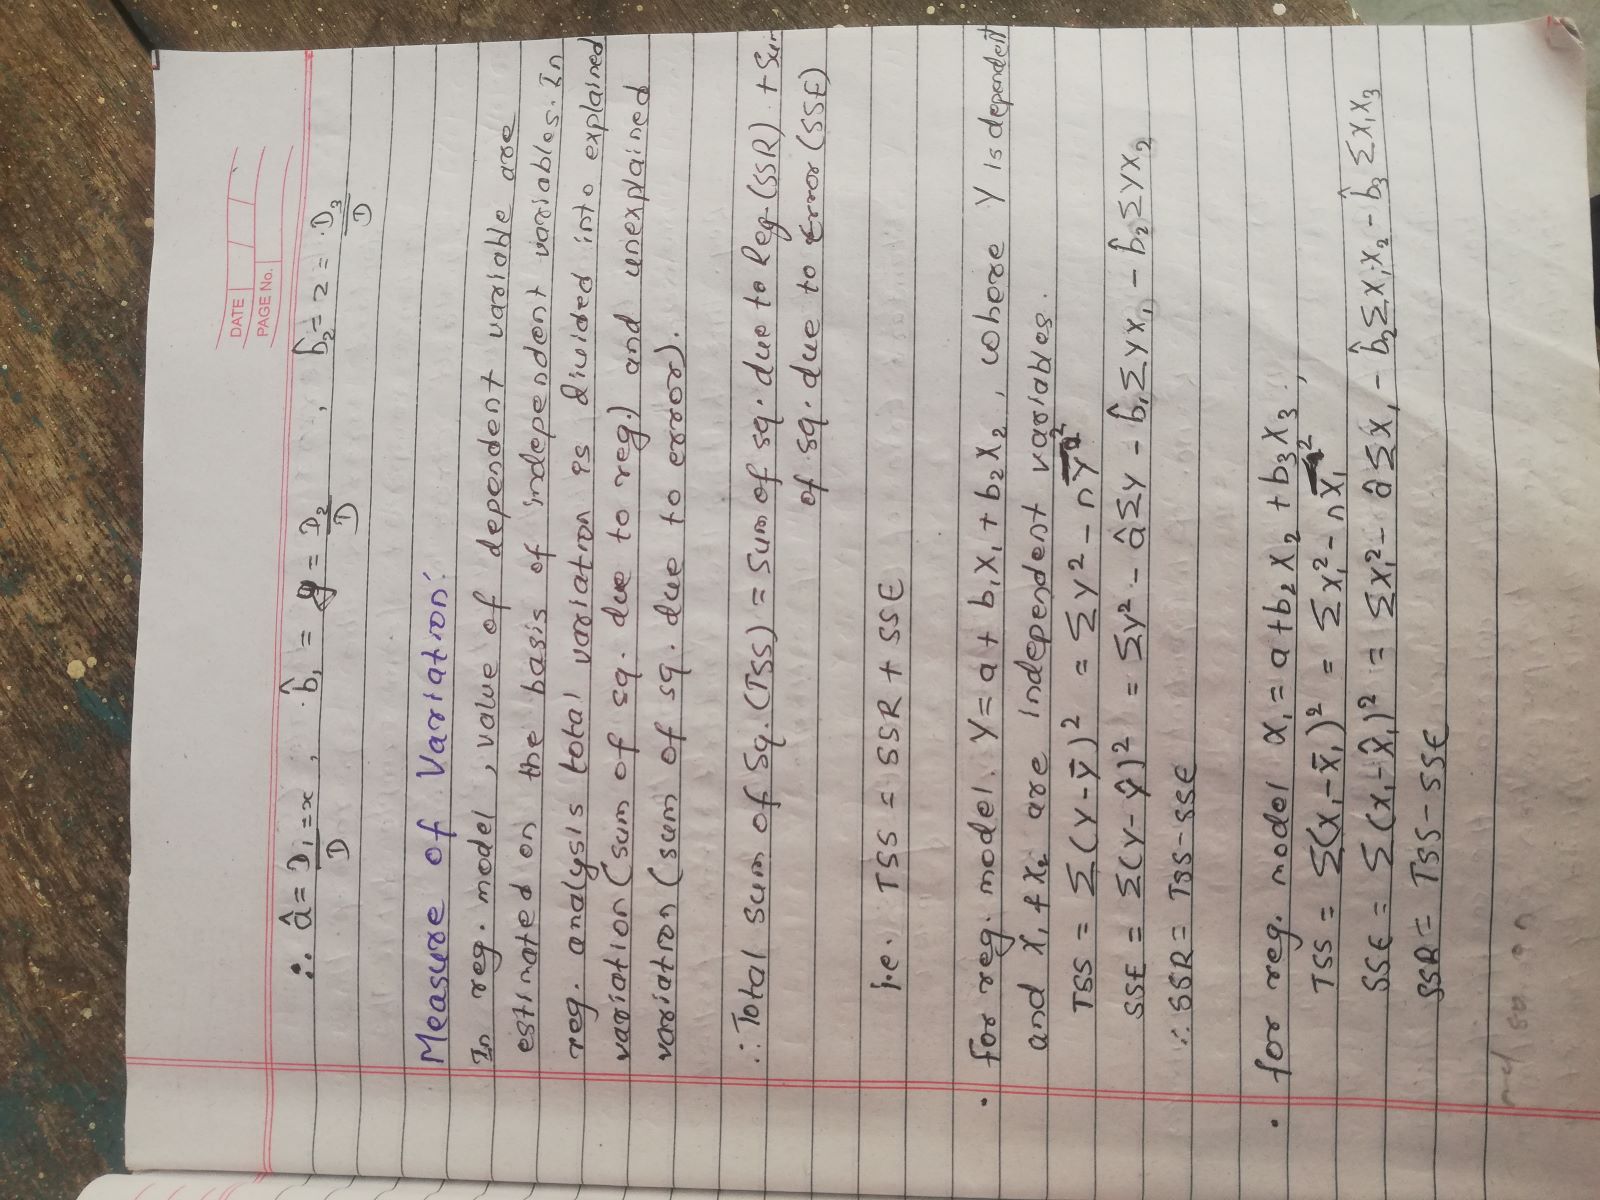 DATE
PAGE No.
∴ â = D₁/D = x , b̂₁ = y = D₂/D , b̂₂ = z = D₃/D
Measure of Variation:
In reg. model, value of dependent variable are
estimated on the basis of independent variables. In
reg. analysis total variation is divided into explained
variation (sum of sq. due to reg.) and unexplained
variation (sum of sq. due to error).
∴ Total sum of Sq. (TSS) = Sum of sq. due to Reg. (SSR) + Sum
of sq. due to Error (SSE)
i.e. TSS = SSR + SSE
• for reg. model. Y = a + b₁X₁ + b₂X₂ , where Y is dependent
and X₁ & X₂ are independent variables.
TSS = Σ(Y - Ȳ)² = ΣY² - nȲ²
SSE = Σ(Y - Ŷ)² = ΣY² - âΣY - b̂₁ΣYX₁ - b̂₂ΣYX₂
∴ SSR = TSS - SSE
• for reg. model X₁ = a + b₂X₂ + b₃X₃ ,
TSS = Σ(X₁ - X̄₁)² = ΣX₁² - nX̄₁²
SSE = Σ(X₁ - X̂₁)² = ΣX₁² - âΣX₁ - b̂₂ΣX₁X₂ - b̂₃ΣX₁X₃
SSR = TSS - SSE
and so on